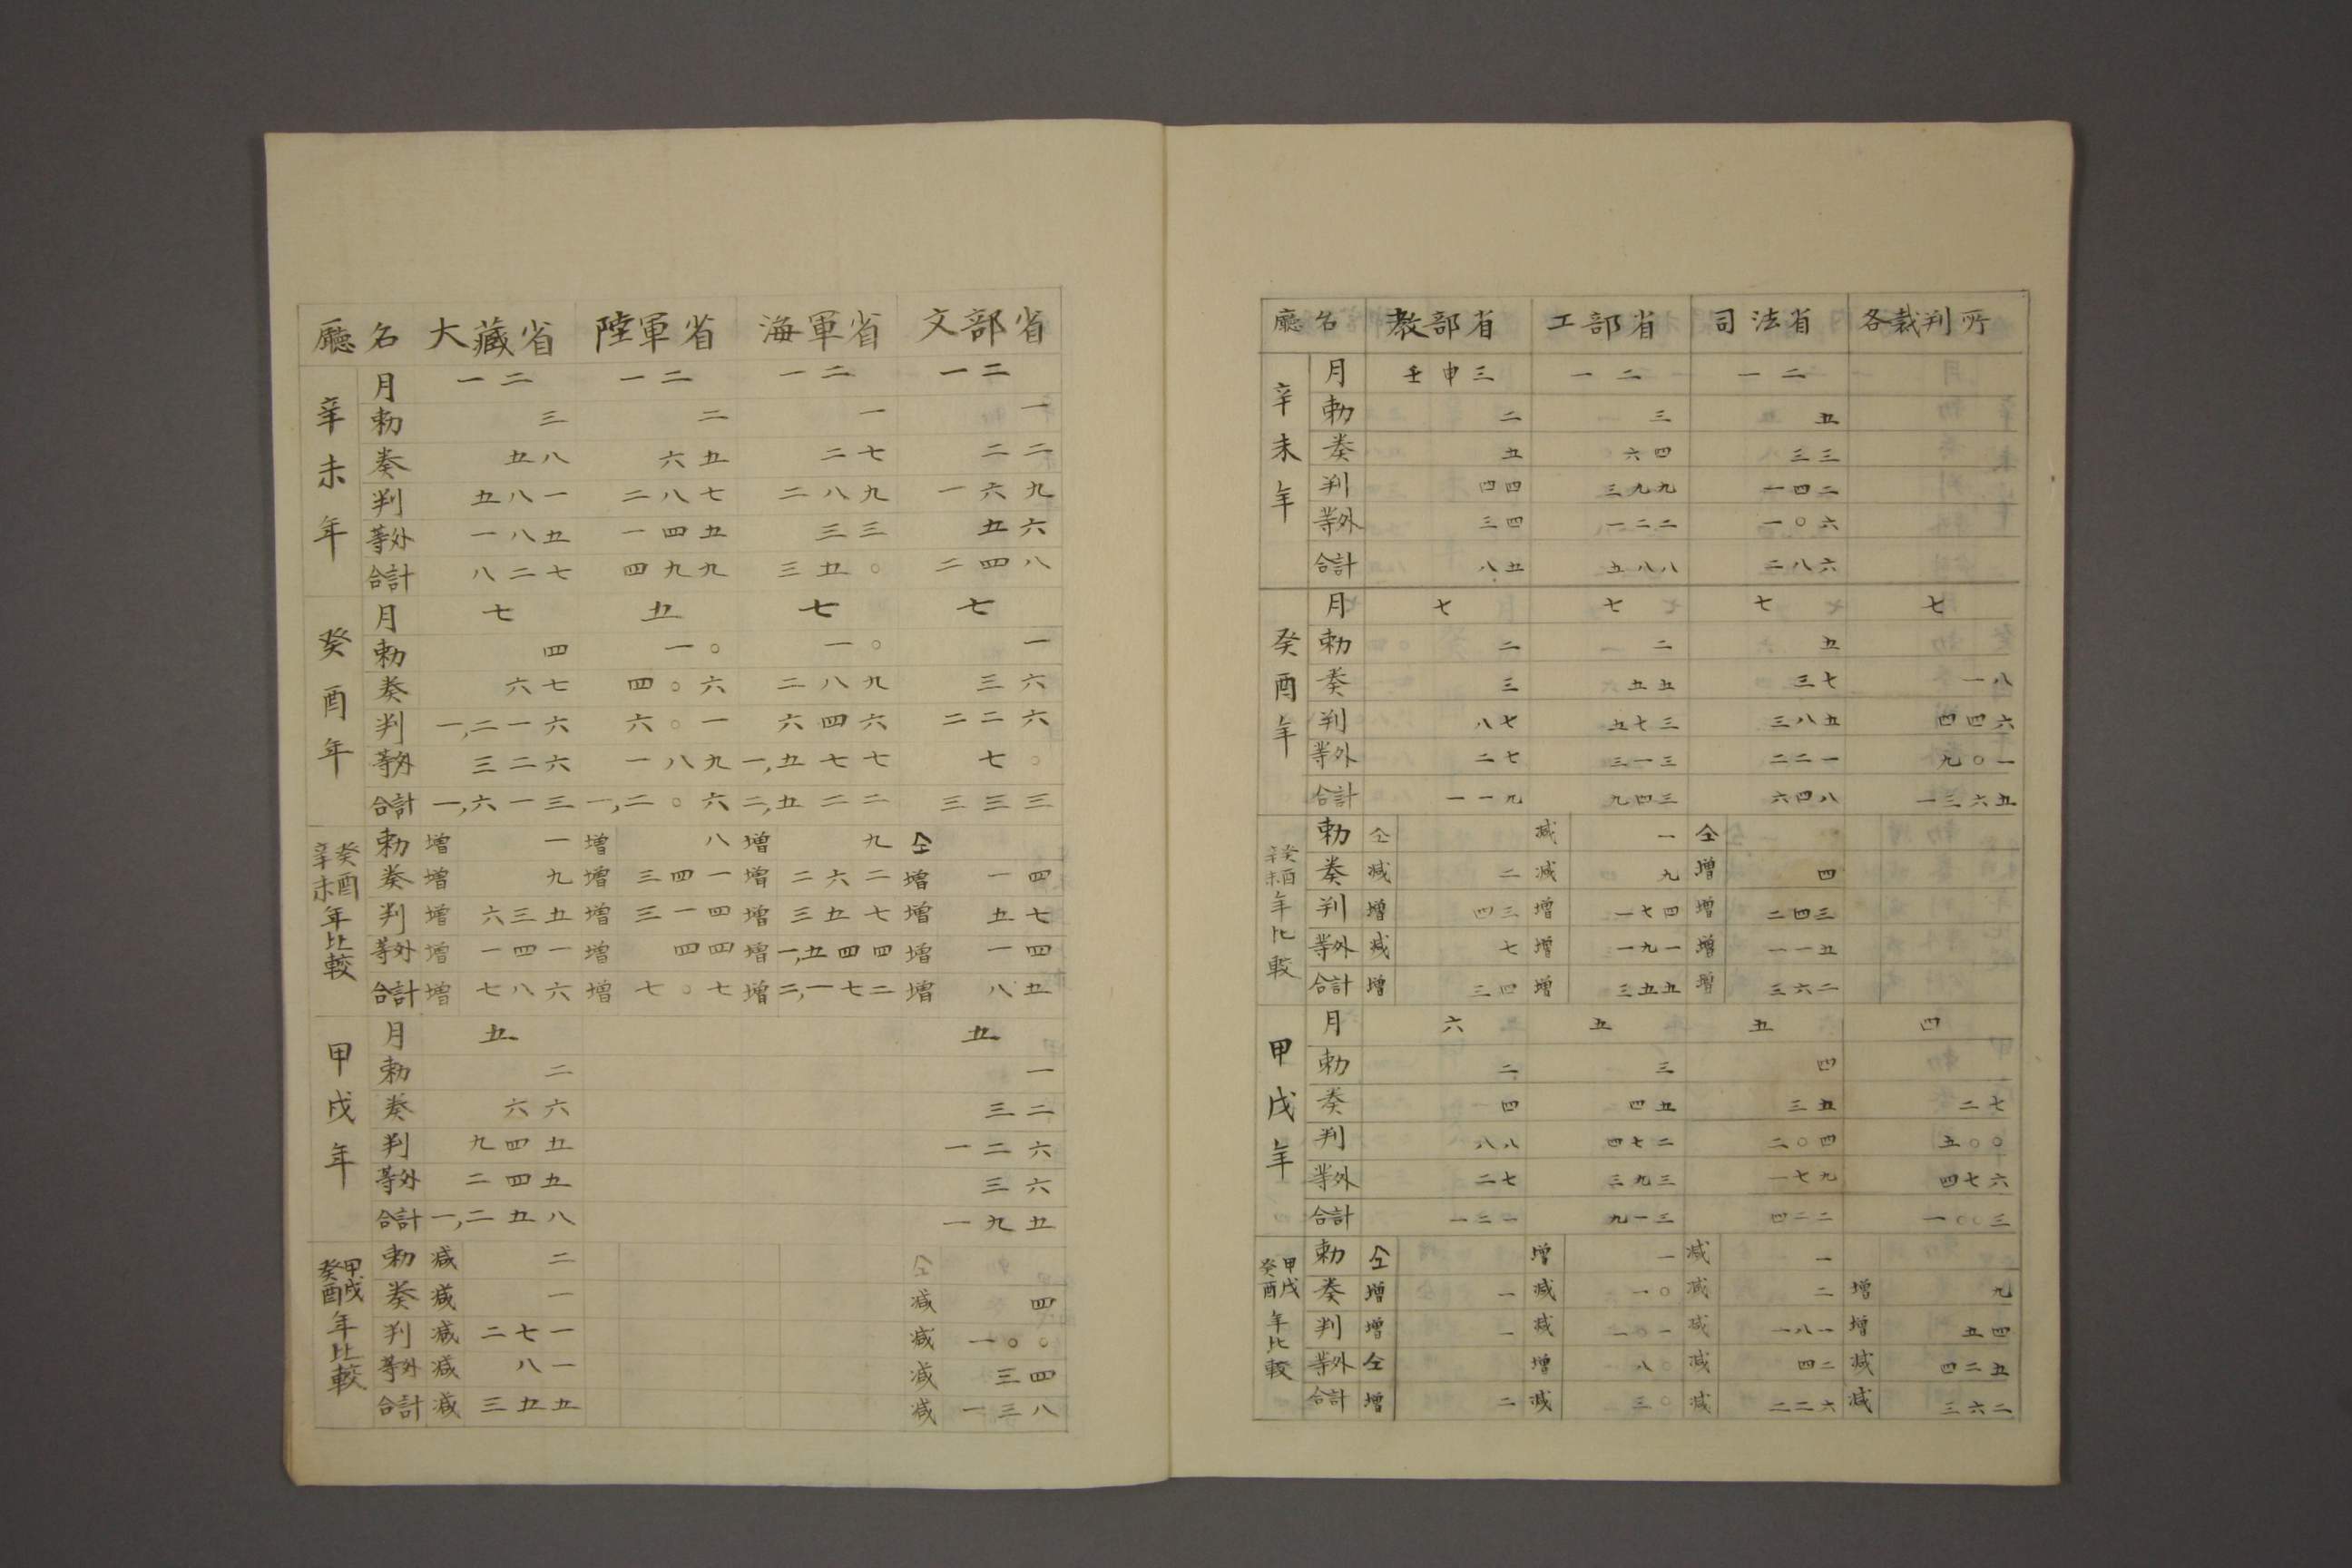 廳名 大藏省 陸軍省 海軍省 文部省
辛未年
月 一二 一二 一二 一二
勅 三 二 一 一
奏 五八 六五 二七 二二
判 五八一 二八七 二八九 一六九
等外 一八五 一四五 三三 五六
合計 八二七 四九九 三五〇 二四八
癸酉年
月 七 五 七 七
勅 四 一〇 一〇 一
奏 六七 四〇六 二八九 三六
判 一,二一六 六〇一 六四六 二二六
等外 三二六 一八九 一,五七七 七〇
合計 一,六一三 一,二〇六 二,五二二 三三三
癸酉辛未年比較
勅 増 一 増 八 増 九 仝
奏 増 九 増 三四一 増 二六二 増 一四
判 増 六三五 増 三一四 増 三五七 増 五七
等外 増 一四一 増 四四 増 一,五四四 増 一四
合計 増 七八六 増 七〇七 増 二,一七二 増 八五
甲戌年
月 五 五
勅 二 一
奏 六六 三二
判 九四五 一二六
等外 二四五 三六
合計 一,二五八 一九五
甲戌癸酉年比較
勅 減 二 仝
奏 減 一 減 四
判 減 二七一 減 一〇〇
等外 減 八一 減 三四
合計 減 三五五 減 一三八
廳名 教部省 工部省 司法省 各裁判所
辛未年
月 壬申三 一二 一二
勅 二 三 五
奏 五 六四 三三
判 四四 三九九 一四二
等外 三四 一二二 一〇六
合計 八五 五八八 二八六
癸酉年
月 七 七 七 七
勅 二 二 五
奏 三 五五 三七 一八
判 八七 五七三 三八五 四四六
等外 二七 三一三 二二一 九〇一
合計 一一九 九四三 六四八 一三六五
癸酉辛未年比較
勅 仝 減 一 仝
奏 減 二 減 九 増 四
判 増 四三 増 一七四 増 二四三
等外 減 七 増 一九一 増 一一五
合計 増 三四 増 三五五 増 三六二
甲戌年
月 六 五 五 四
勅 二 三 四
奏 四 四五 三五 二七
判 八八 四七二 二〇四 五〇〇
等外 二七 三九三 一七九 四七六
合計 一二一 九一三 四二二 一〇〇三
甲戌癸酉年比較
勅 仝 増 一 減 一
奏 増 一 減 一〇 減 二 増 九
判 増 一 減 一〇一 減 一八一 増 五四
等外 仝 増 八〇 減 四二 減 四二五
合計 増 二 減 三〇 減 二二六 減 三六二